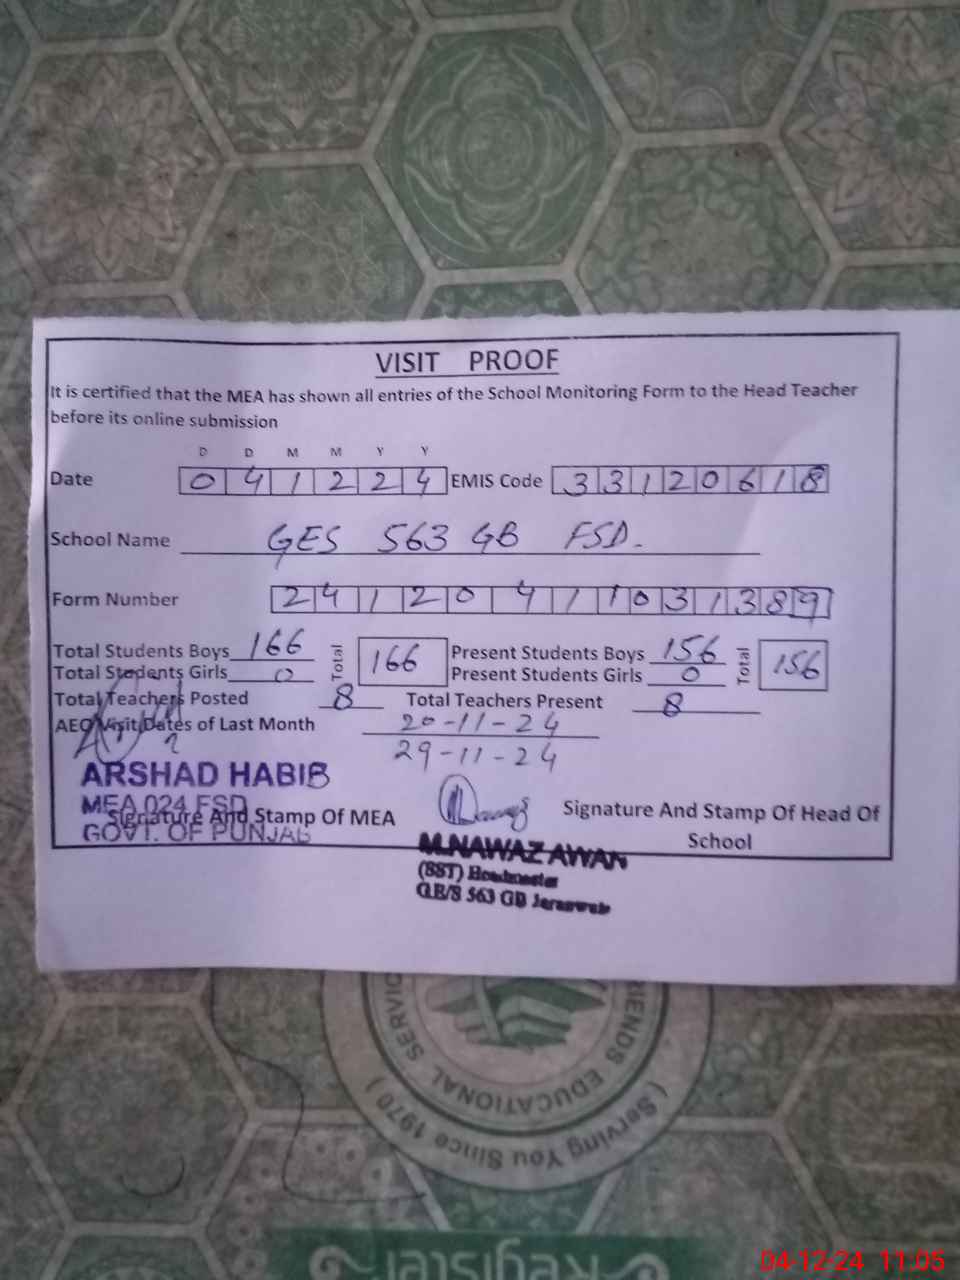 VISIT PROOF
It is certified that the MEA has shown all entries of the School Monitoring Form to the Head Teacher
before its online submission
D D M M Y Y
Date 041224 EMIS Code 33120618
School Name GES 563 GB FSD.
Form Number 24120411031389
Total Students Boys 166 Total 166 Present Students Boys 156 Total 156
Total Students Girls 0 Present Students Girls 0
Total Teachers Posted 8 Total Teachers Present 8
AEO Visit Dates of Last Month 20-11-24
29-11-24
ARSHAD HABIB
MEA 024 FSD
GOVT. OF PUNJAB
Signature And Stamp Of MEA
Signature And Stamp Of Head Of
School
M.NAWAZ AWAN
(SST) Headmaster
563 GB Jaranwala
SERVIC
RIENDS EDUCATIONAL
( Serving You Since 1970 )
Register
04-12-24 11:05